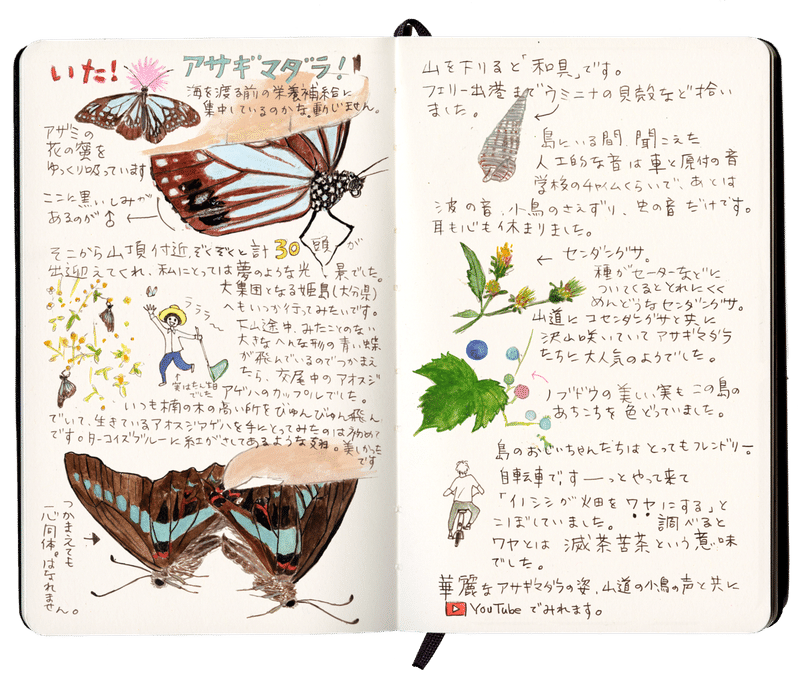 いた! アサギマダラ!
海を渡る前の栄養補給に
集中しているのかな。動じません。
アザミの
花の蜜を
ゆっくり吸っています
ここに黒いしみが
あるのが♂
そこから山頂付近、ぞくぞくと計30頭が
出迎えてくれ、私にとっては夢のような光景でした。
大集団となる姫島(大分県)
へもいつか行ってみたいです。
ラララ〜
下山途中、みたことのない
大きなへんな形の青い蝶
が飛んでいるのでつかまえ
たら、交尾中のアオスジ
アゲハのカップルでした。
実はたし算
でした
いつも楠の木の高い所をびゅんびゅん飛ん
でいて、生きているアオスジアゲハを手にとってみたのは初めて
です。ターコイズブルーに紅がさしてあるような翅。美しかった
です
つかまえても
一心同体。はなれま
せん。
山を下りると「和具」です。
フェリー出港までウミニナの貝殻など拾い
ました。
島にいる間、聞こえた
人工的な音は車と原付の音
学校のチャイムくらいで、あとは
波の音、小鳥のさえずり、虫の音だけです。
耳も心も休まりました。
センダングサ。
種がセーターなどに
ついてくるととれにくく
めんどうなセンダングサ。
山道にコセンダングサと共に
沢山咲いていてアサギマダラ
たちに大人気のようでした。
ノブドウの美しい実もこの島の
あちこちを色どっていました。
島のおじいちゃんたちはとってもフレンドリー。
自転車ですーーっとやって来て
「イノシシが畑をワヤにする」と
こぼしていました。調べると
ワヤとは滅茶苦茶という意味
でした。
華麗なアサギマダラの姿、山道の小鳥の声と共に
YouTubeでみれます。